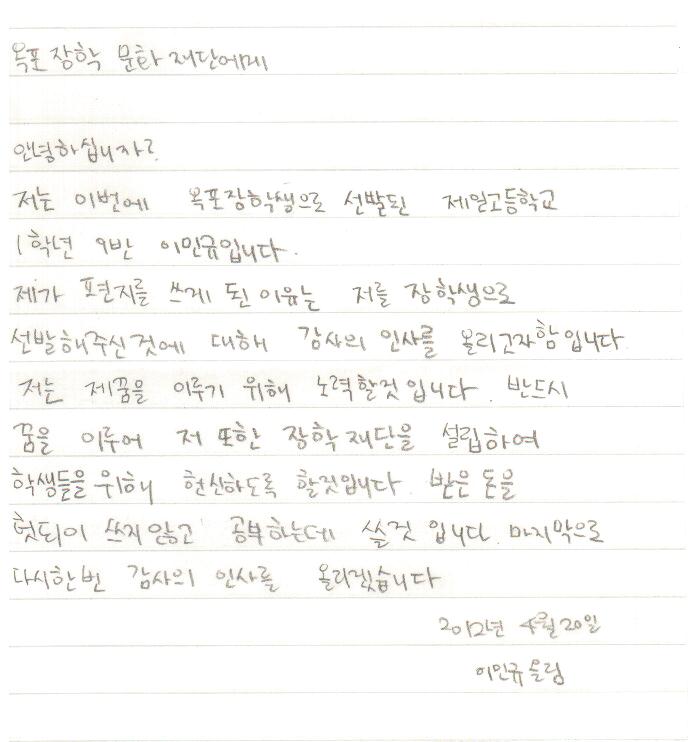 옥포 장학 문화 재단에게
안녕하십니까?
저는 이번에 옥포장학생으로 선발된 제일고등학교
1학년 9반 이민규입니다.
제가 편지를 쓰게 된 이유는 저를 장학생으로
선발해주신것에 대해 감사의 인사를 올리고자함입니다.
저는 제꿈을 이루기 위해 노력할것입니다. 반드시
꿈을 이루어 저 또한 장학재단을 설립하여
학생들을 위해 헌신하도록 할것입니다. 받은 돈을
헛되이 쓰지않고 공부하는데 쓸것 입니다. 마지막으로
다시한번 감사의 인사를 올리겠습니다
2012년 4월 20일
이민규올림